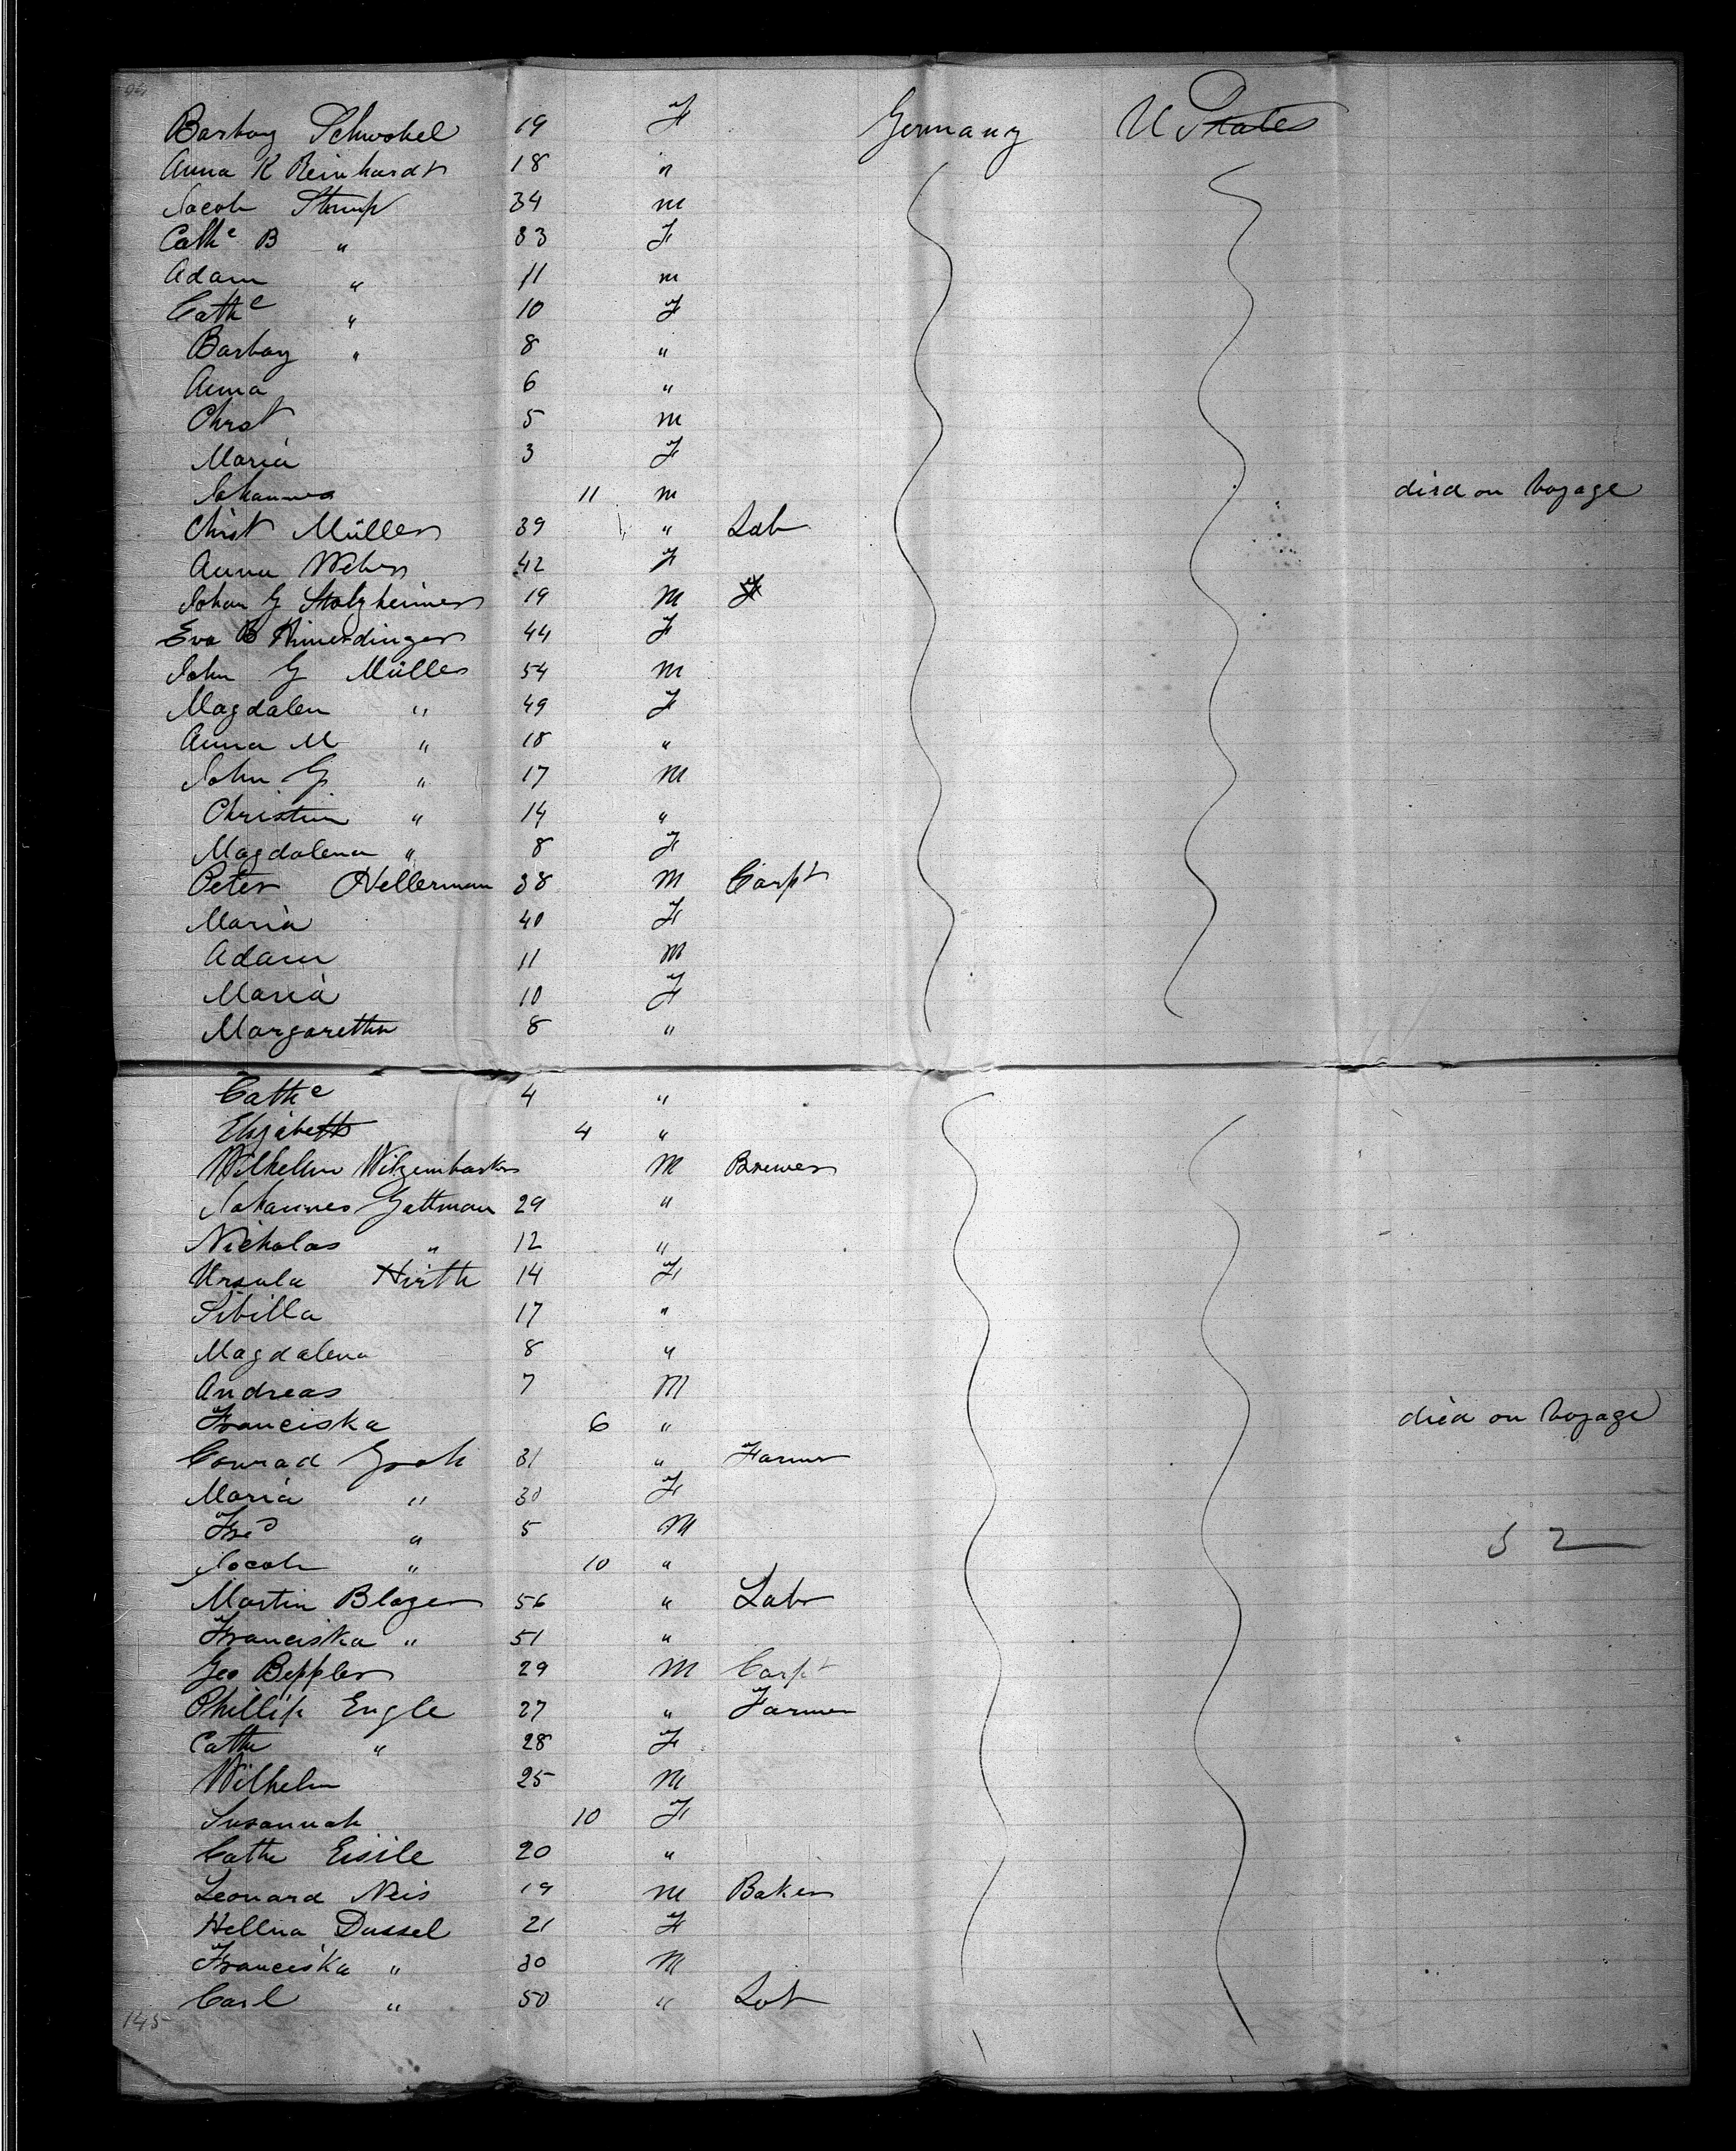 94
Barbay Schwobel 19 F Germany U States
Anna K Reinhardt 18 "
Jacob Stump 34 M
Cathe B " 33 F
Adam " 11 M
Cathe " 10 F
Barbay " 8 "
Anna 6 "
Christ 5 M
Maria 3 F
Johannes 11 M died on Voyage
Christ Müller 39 " Lab
Anna Weber 42 F
Johan G Stolzheimer 19 M F
Eva B 44 F
John G Müller 54 M
Magdalen " 49 F
Anna M " 18 "
John G " 17 M
Christian " 14 "
Magdalena " 8 F
Peter Hellerman 38 M Carpt
Maria 40 F
Adam 11 M
Maria 10 F
Margaretha 8 "
Cathe 4 "
Elizabeth 4 "
Wilhelm M Brewer
Johannes Gettman 29 "
Nicholas " 12 "
Ursula Hirth 14 F
Sibilla 17 "
Magdalena 8 "
Andreas 7 M
Franciska 6 " died on Voyage
Conrad 31 " Farmer
Maria " 30 F
Fred " 5 M
52
Jacob " 10 "
Martin Blazer 56 " Labr
Franciska " 51 "
Geo Beppler 29 M Carpt
Phillip Engle 27 " Farmer
Cathe " 28 F
Wilhelm 25 M
Susannah 10 F
Cathe Eisile 20 "
Leonard Neis 19 M Baker
Hellna Dussel 21 F
Franciska " 30 M
Carl " 50 " Lab
145